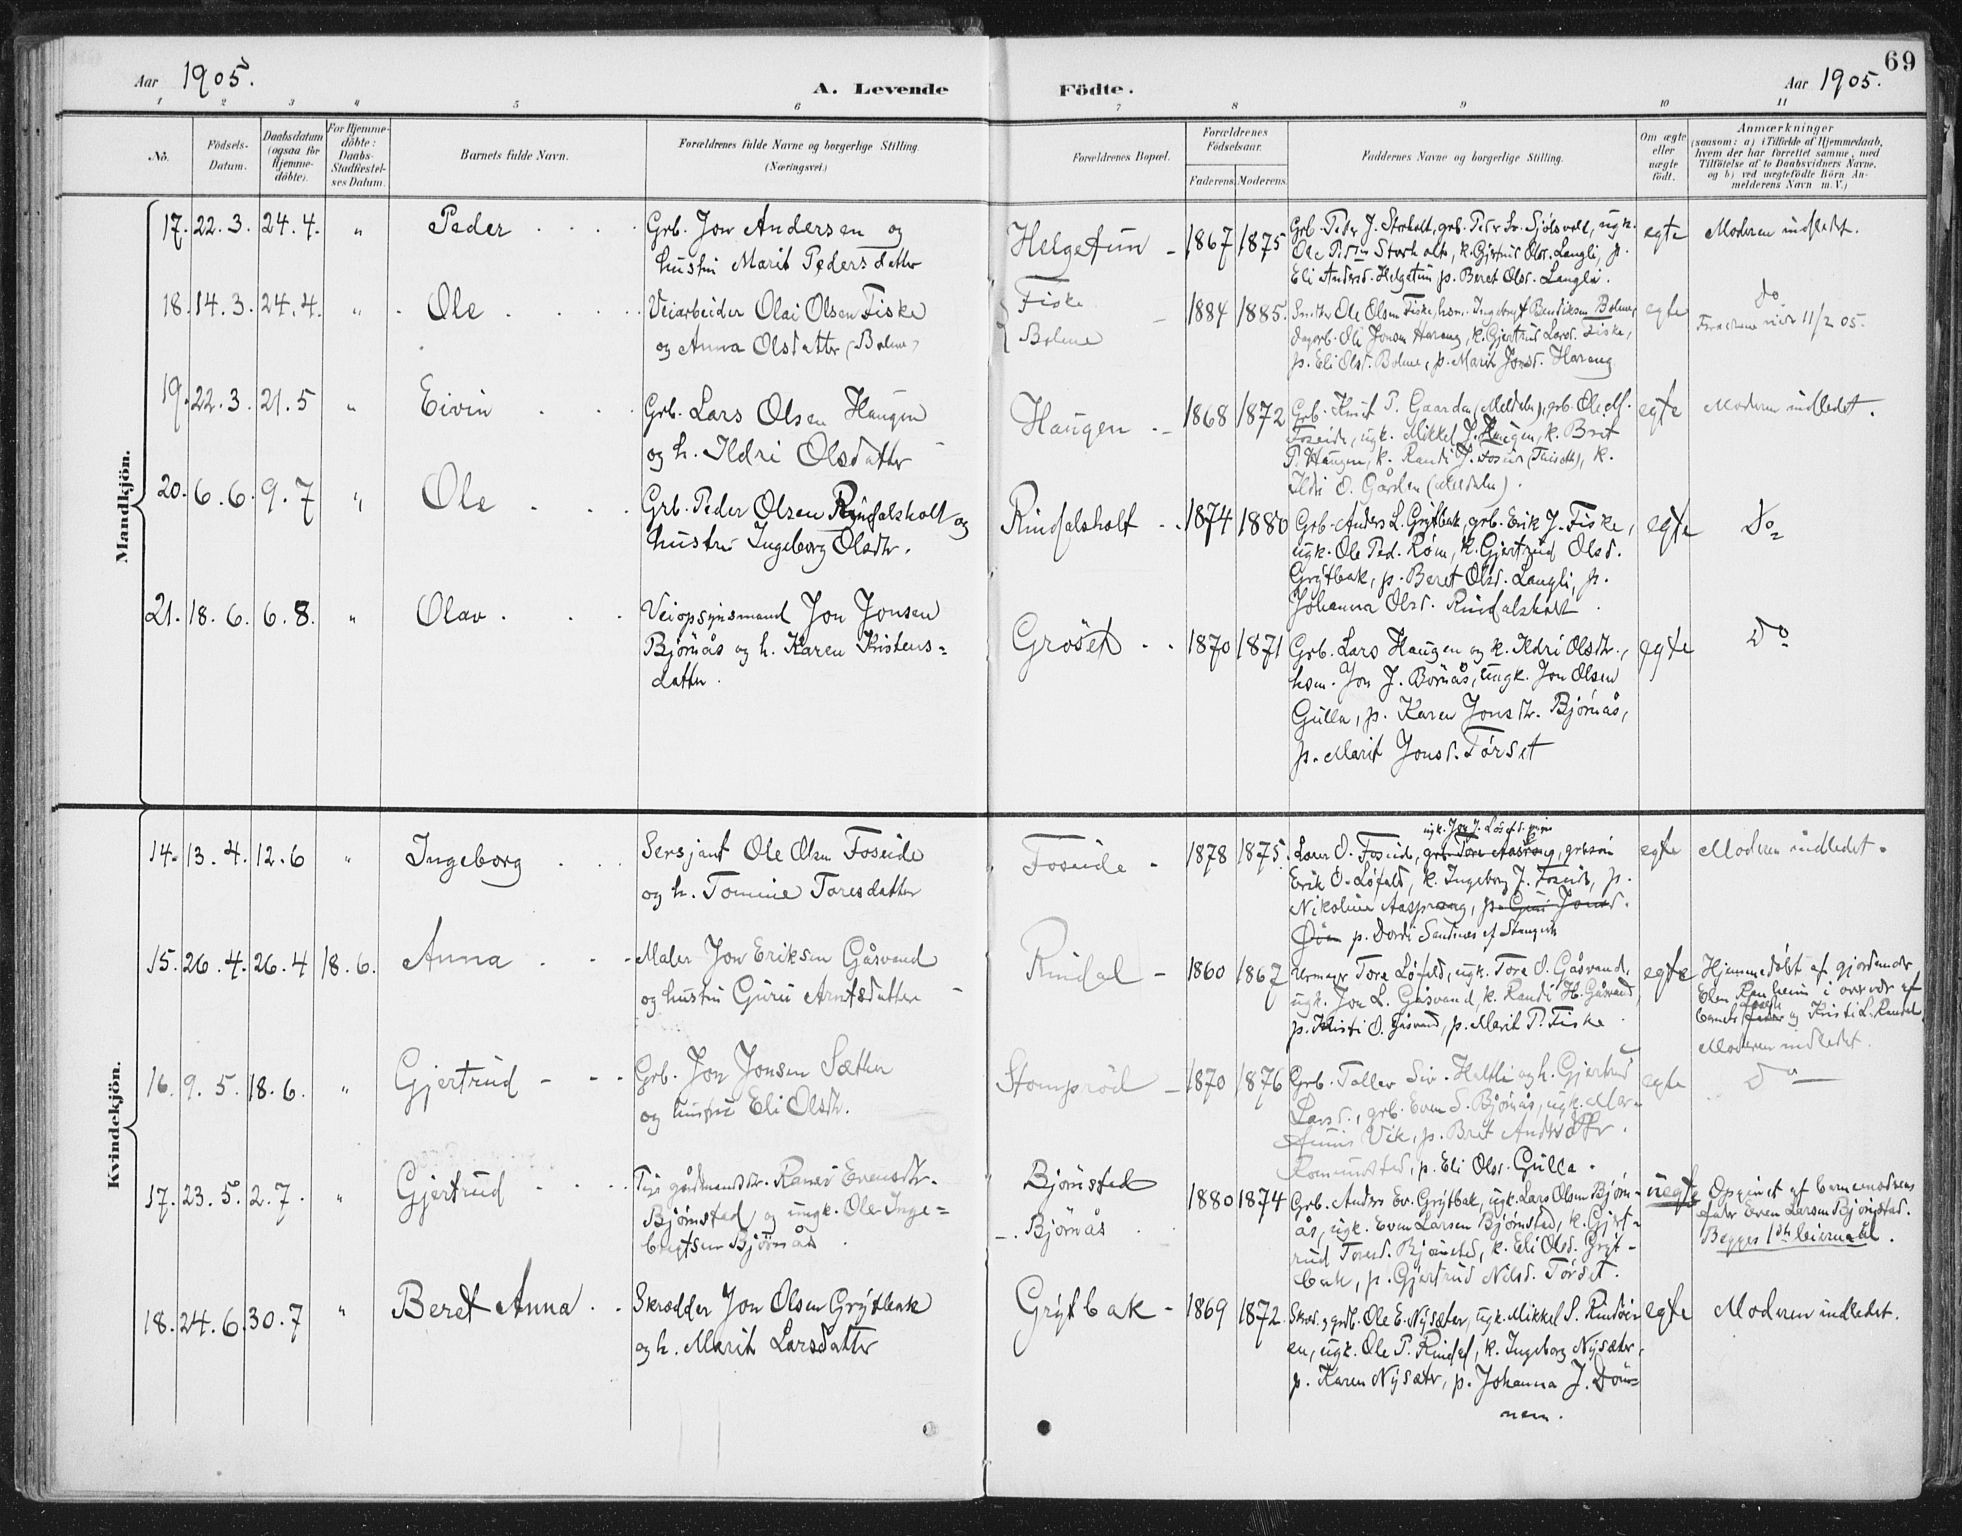 69
Aar 1905.
A. Levende Födte.
Aar 1905.
1 2 3 4 5 6 7 8 9 10 11
No.
Födsels-Datum.
Daabsdatum (ogsaa for Hjemme-döbte).
For Hjemme-döbte: Daabs-Stadfæstel-ses Datum.
Barnets fulde Navn.
Forældrenes fulde Navne og borgerlige Stilling.
(Næringsvei.)
Forældrenes Bopæl.
Forældrenes Födselsaar.
Faderens. Moderens.
Faddernes Navne og borgerlige Stilling.
Om ægte eller uægte födt.
Anmærkninger
(saasom: a) i Tilfælde af Hjemmedaab,
hvem der har forrettet samme, med
Tilföielse af to Daabsvidners Navne,
og b) ved uægtefödte Börn An-
melderens Navn m. V.)
Mandkjön.
17. 22.3. 24.4. " Peder
Grb. Jon Andersen og
hustru Marit Pedersdatter
Helgetun 1867 1875
Grb. Peder J. Storholt, grb. Peder Sjølsvold, ugk.
Ole Storholt, k. Gjertrud Olsd. Langli, p.
Eli Andersd. Helgetun, p. Beret Olsd. Langli.
egte Moderen indledet.
18. 14.3. 24.4. " Ole
Veiarbeider Olai Olsen Fiske
og Anna Olsdatter (Bolme)
Fiske
Bolme
1884 1885.
Ole Olsen Fiske, hsm. Ingebrigt Bendiksen Bolme,
dagarb. Oli Jonsen Harang, k. Gjertrud Larsd. Fiske,
p. Eli Olsd. Bolme, p. Marit Jonsd. Harang
egte do
11/2 05.
19. 22.3. 21.5 " Eivin
Grb. Lars Olsen Haugen
og h. Ildri Olsdatter
Haugen 1868 1872
Grb. Knut P. Gaarden (Meldalen), grb. Ole M.
Foseide, ugk. Mikkel J. Haugen, k. Brit
P. Haugen, k. Randi J. k.
Ildri O. Gården (Meldalen).
egte Moderen indledet.
20. 6.6. 9.7 " Ole
Grb. Peder Olsen Rindalsholt og
hustru Ingeborg Olsdtr.
Rindalsholt 1874 1880
Grb. Anders L. Grytbak, grb. Erik J. Fiske,
ugk. Ole Ped. Røm, k. Gjertrud Olsd.
Grytbak, p. Beret Olsd. Langli, p.
Johanna Olsd. Rindalsholt.
egte Do
21. 18.6. 6.8. " Olav
Veiopsynsmand Jon Jonsen
Bjørnås og h. Karen Kristens=
datter.
Grøset 1870 1871
Grb. Lars Haugen og k. Ildri Olsdtr.,
hsm. Jon J. Børnås, ungk. Jon Olsen
Gulla, p. Karen Jonsdtr. Bjørnås,
p. Marit Jonsd. Tørset
egte Do
Kvindekjön.
14. 13.4. 12.6 " Ingeborg
Sersjant Ole Olsen Foseide
og h. Tomine Toresdatter
Foseide 1878 1875.
ugk. Jon J.
O. Foseide, grb. Tore Aasprong,
Erik O. Løfald, k. Ingeborg J. Foseide, p.
Nikoline Aasprong, p. Guri Jonsd.
p. Dordi Sandnes af Stangvik
egte Moderen indledet.
15. 26.4. 26.4 18.6. Anna
Maler Jon Eriksen Gåsvand
og hustru Guru Arntsdatter
Rindal 1860 1867
Urmager Tore Løfald, ugk. Tore O. Gåsvand,
ugk. Jon L. Gåsvand, k. Randi H. Gåsvand,
p. Kristi O. Gåsvand, p. Marit P. Fiske
egte Hjemmedøbt af gjordemor
Elen Ranheim i overvær af
barnets og Kristi L. Rindal
Moderen indledet.
16. 9.5. 18.6. " Gjertrud
Grb. Jon Jonsen Sæther
og hustru Eli Olsdtr.
Stomprød 1870 1876
Grb. Tollev Siv. Heltli og h. Gjertrud
Larsd., grb. Even S. Bjørnås, ugk. Mar=
Vik, p. Brit Andersdtr.
Romundstad, p. Eli Olsd. Gulla.
egte Do
17. 23.5. 2.7. " Gjertrud
Pige gårdmandsdtr. Ranei Evensdtr.
Bjørnstad og ungk. Ole Inge=
brigtsen Bjørnås.
Bjørnstad
Bjørnås
1880 1874
Grb. Anders Ev. Grytbak, ugk. Lars Olsen Bjørn=
ås, ugk. Even Larsen Bjørnstad, k. Gjert=
rud Toresd. Bjørnstad, k. Eli Olsd. Gryt=
bak, p. Gjertrud Nilsd. Tørset.
uegte Opgivet af barnemoderens
fader Even Larsen Bjørnstad.
Begges 1ste leiermaal.
18. 24.6. 30.7 " Beret Anna
Skrædder Jon Olsen Grytbak
og h. Marit Larsdatter
Grytbak 1869 1872.
Skræd. & grdb. Ole E. Nysæter, ugk. Mikkel S. Rindsøi=
en, ugk. Ole P. Rindal, k. Ingeborg Nysæter,
p. Karen Nysæter, p. Johanna J. Dön=
nem.
egte Moderen indledet.